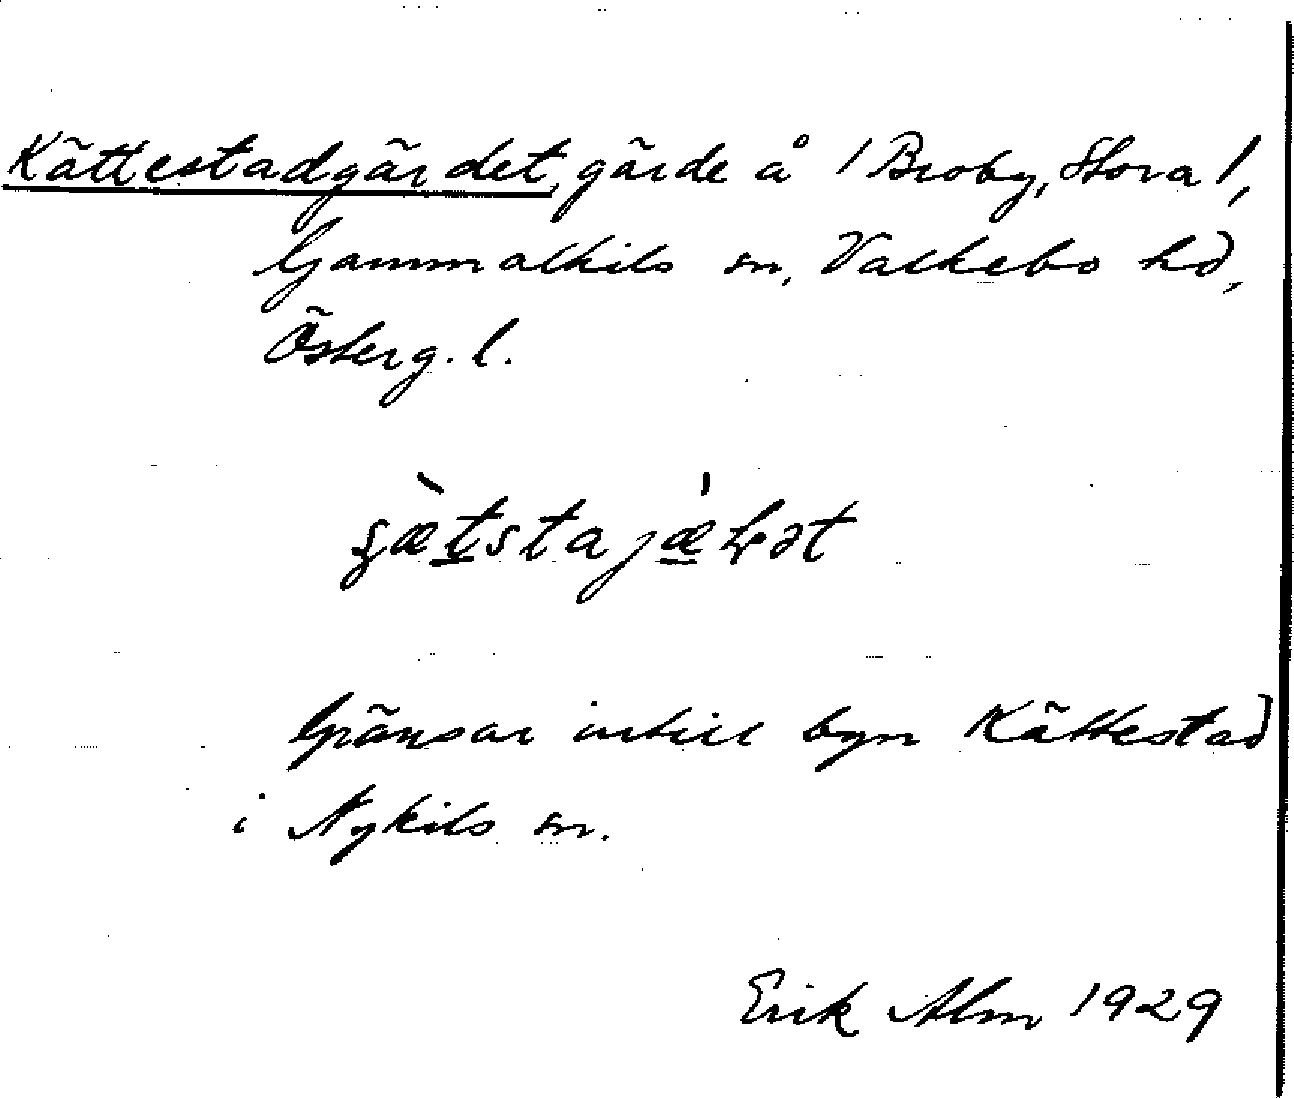 Kättestadgärdet, gärde å /Broby, Stora/,
Gammalkils sn, Valkebo hd,
Österg. l.
Gränsar intill byn Kättestad
i Nykils sn.
Erik Alm 1929